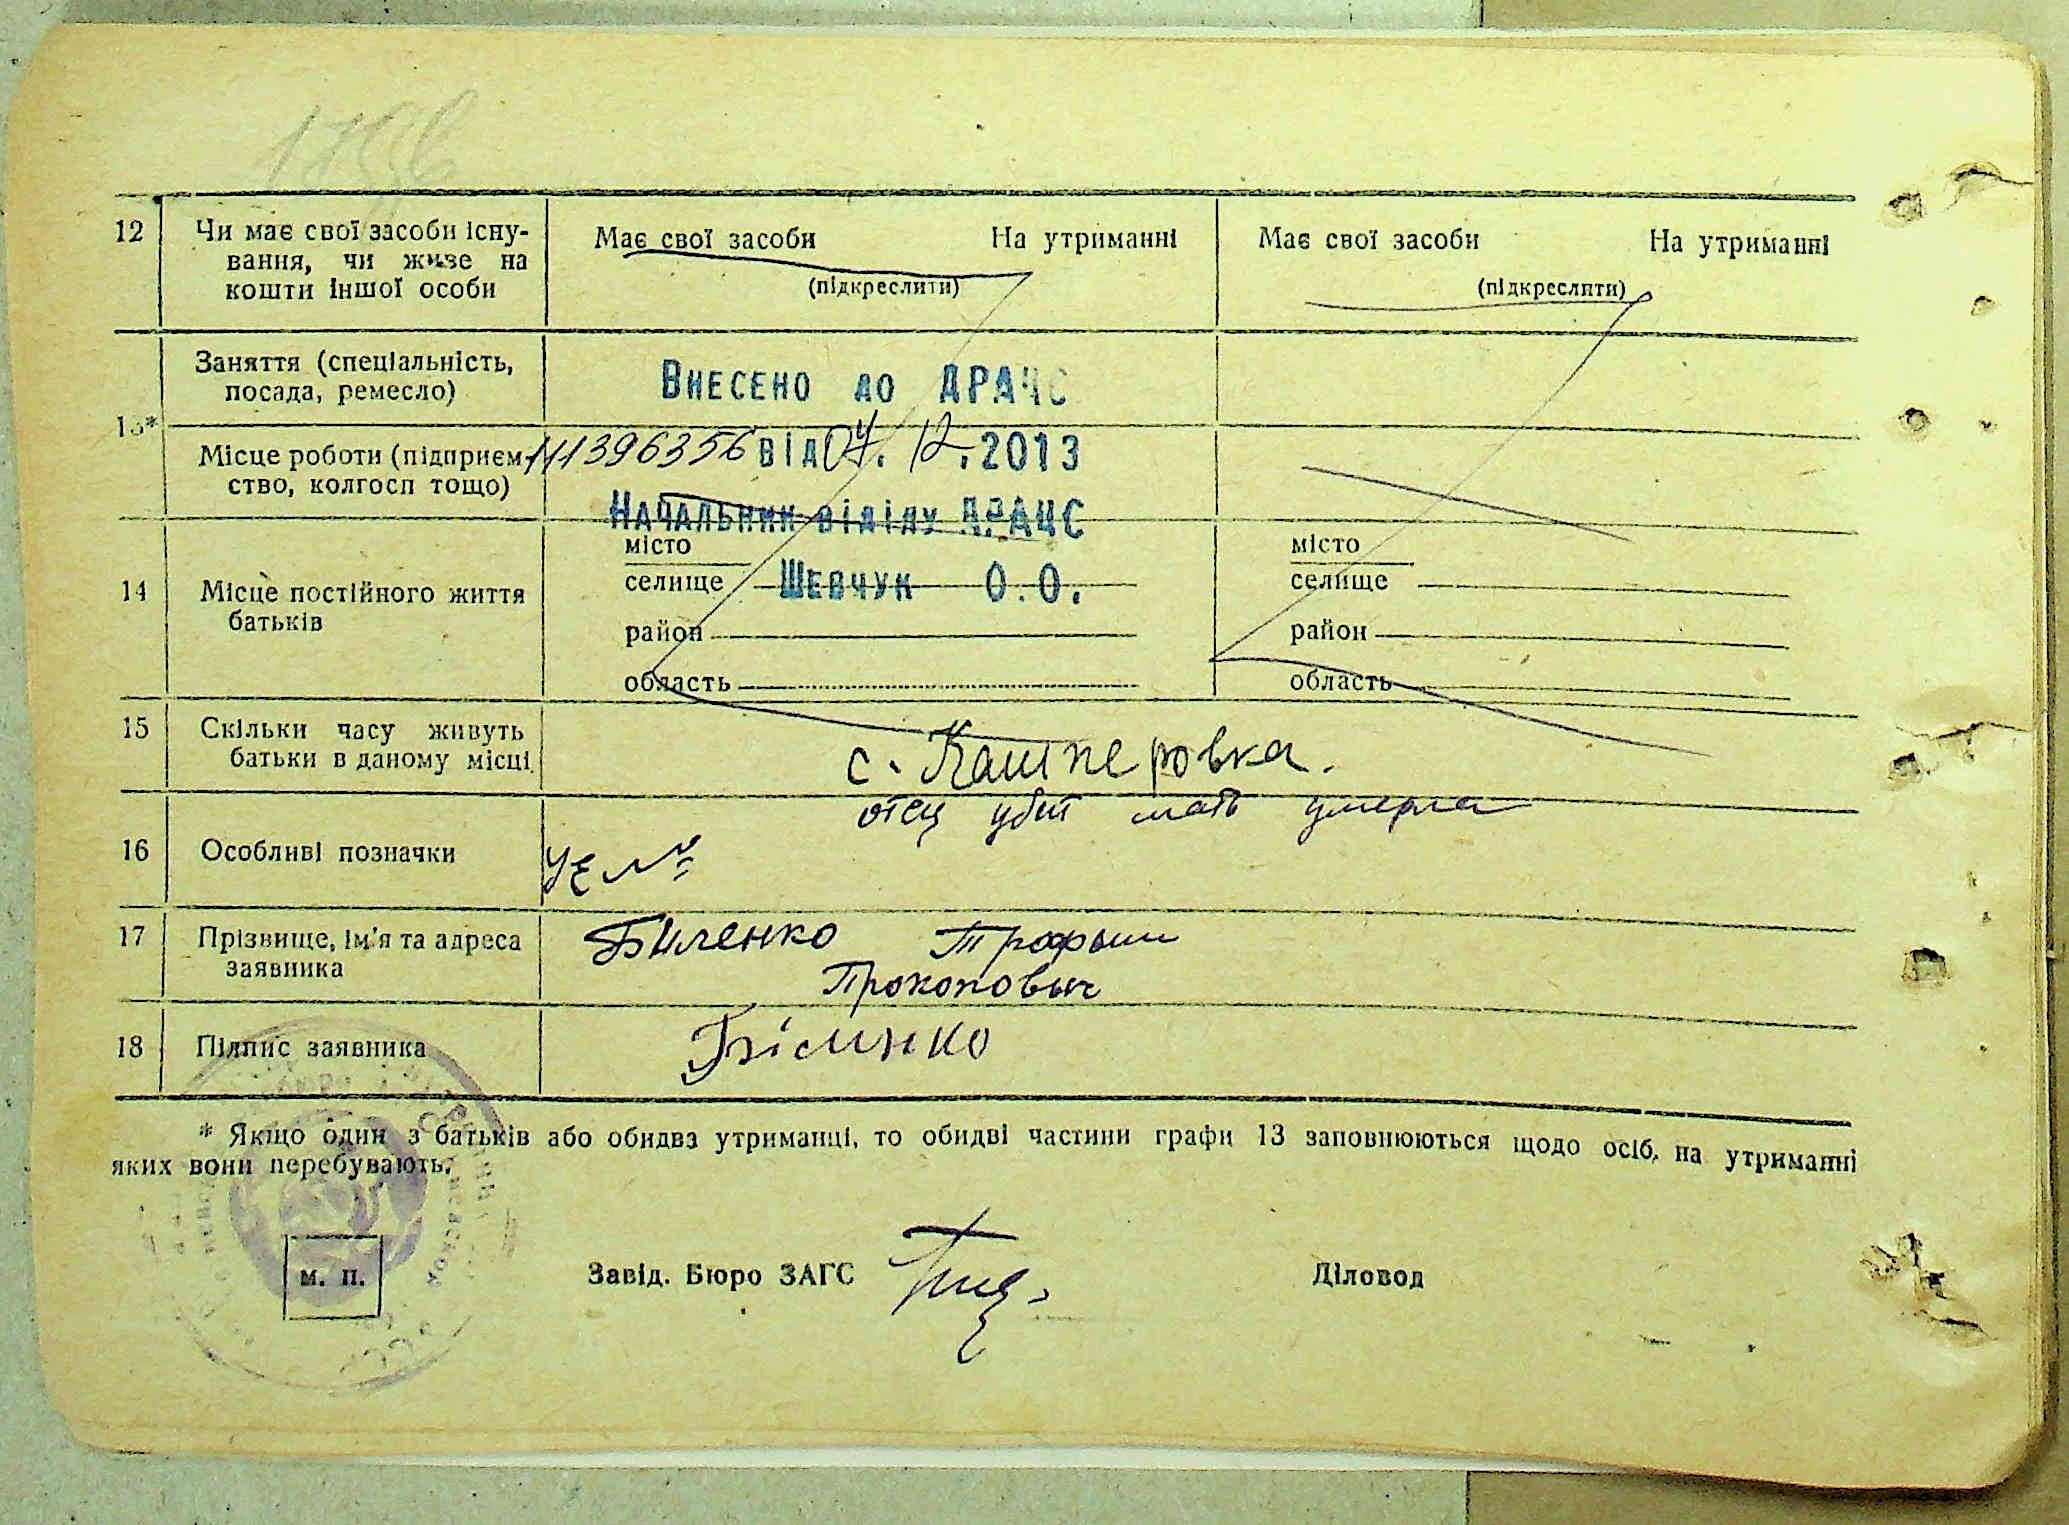 12 Чи має свої засоби існу-
вання, чи живе на
кошти іншої особи
Має свої засоби На утриманні
(підкреслити)
Має свої засоби На утриманні
(підкреслити)
13*
Заняття (спеціальність,
посада, ремесло)
Внесено до ДРАЧС
Місце роботи (підприєм-
ство, колгосп тощо)
111396356 від 04.12.2013
Начальник відділу ДРАЦС
Шевчук О.О.
14 Місце постійного життя
батьків
місто
селище
район
область
місто
селище
район
область
15 Скільки часу живуть
батьки в даному місці
с. Кашперовка.
отец убит мать умерла
16 Особливі позначки
17 Прізвище, ім'я та адреса
заявника
Биленко Трофым
Прокоповыч
18 Підпис заявника
Біленко
* Якщо один з батьків або обидва утриманці, то обидві частини графи 13 заповнюються щодо осіб, на утриманні
яких вони перебувають.
М. П.
Завід. Бюро ЗАГС
Діловод